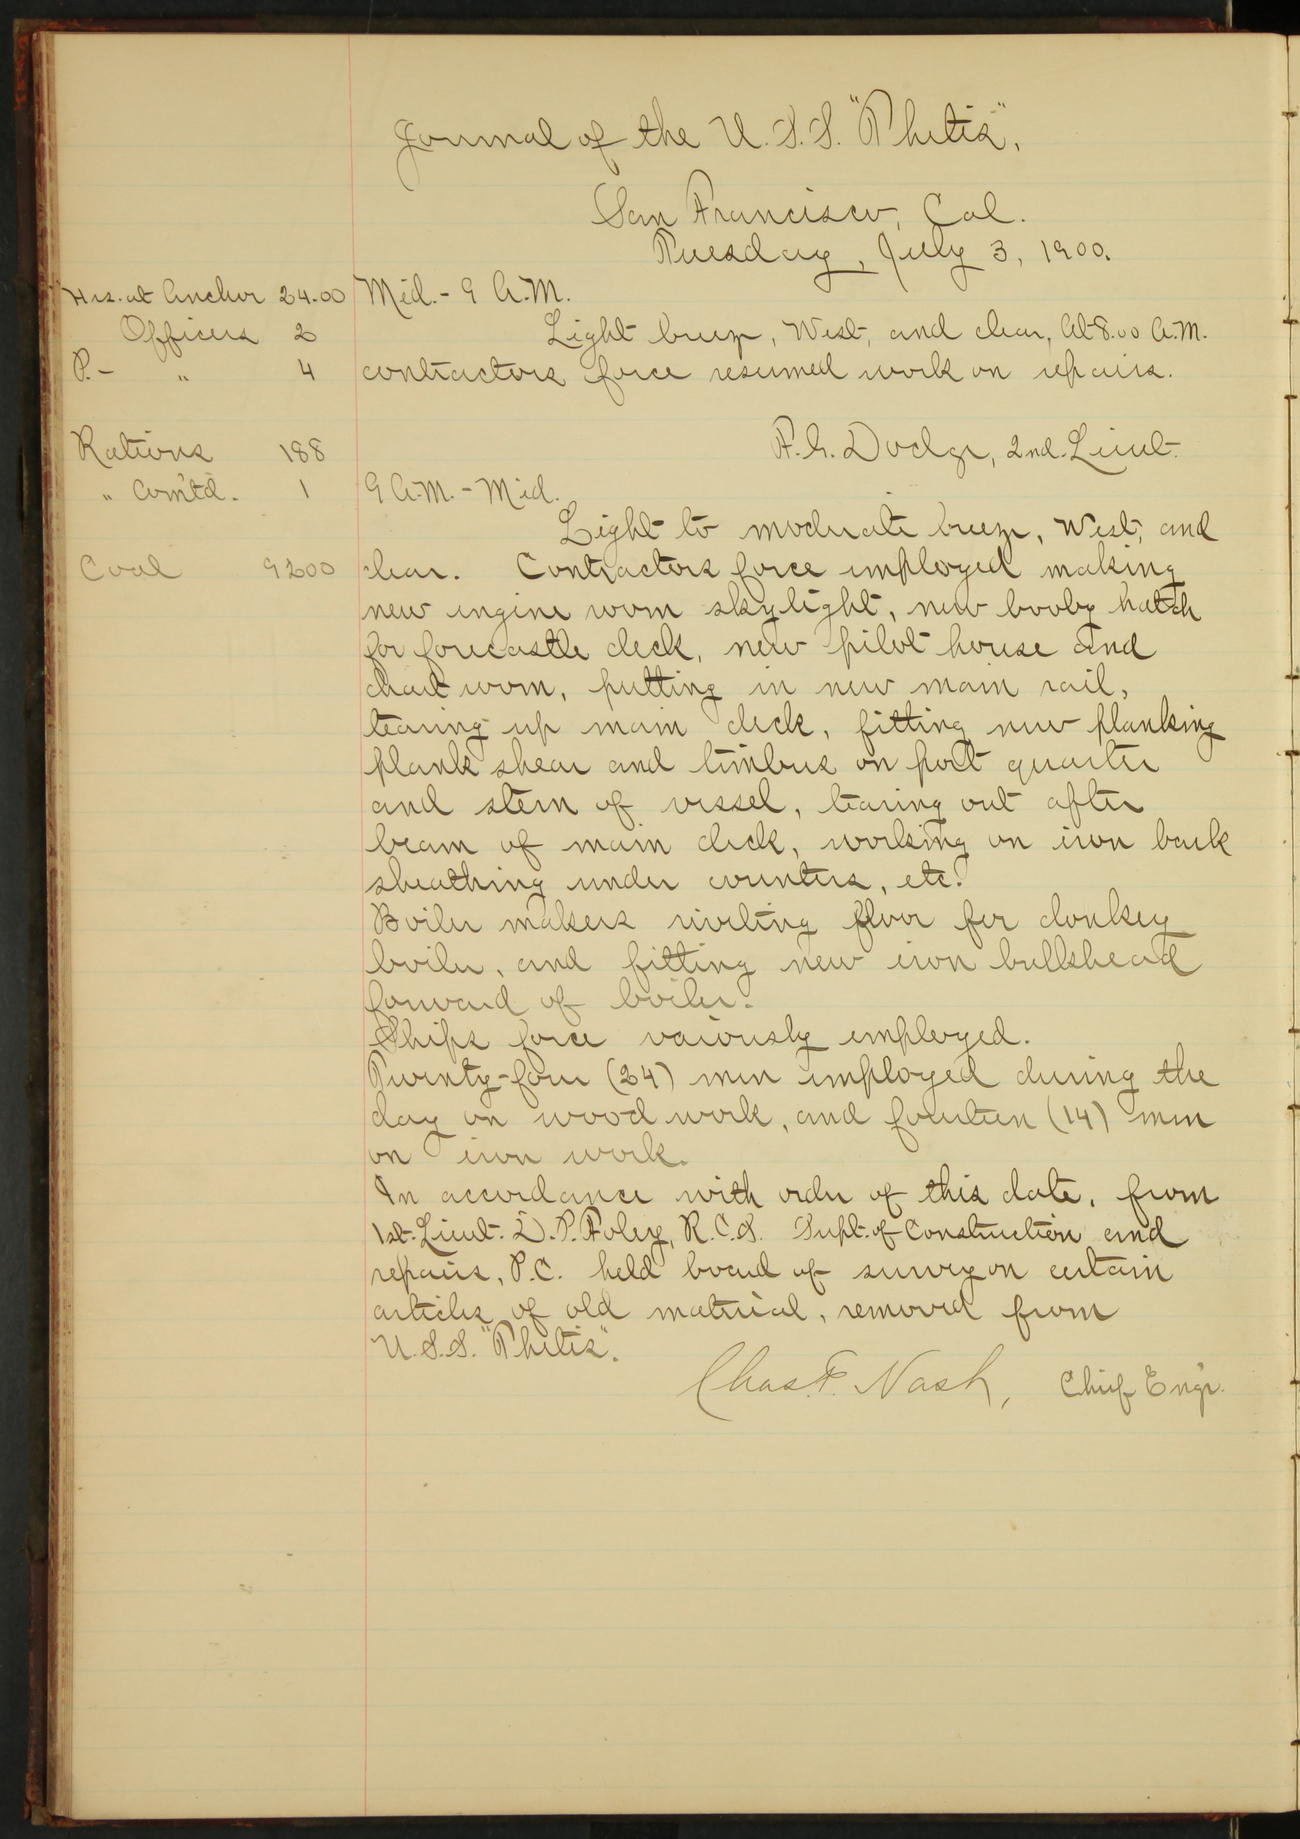 Journal of the U.S.S. "Thetis",
San Francisco, Cal.
Tuesday, July 3, 1900.
Hrs. at Anchor 24.00
Officers 2
P.- " 4
Rations 188
" Com'td. 1
Coal 9200
Mid. - 9 A.M.
Light breeze, West, and clear. At 8.00 A.M.
contractors force resumed work on repairs.
F.G. Dodge, 2nd. Lieut.
9 A.M. - Mid.
Light to moderate breeze, West, and
clear. Contractors force employed making
new engine room skylight, new booby hatch
for forecastle deck, new pilot house and
chart room, putting in new main rail,
tearing up main deck, fitting new planking
plank shear and timbers on port quarter
and stern of vessel, tearing out after
beam of main deck, working on iron bark
sheathing under counters, etc.
Boiler makers riveting floor for donkey
boiler, and fitting new iron bulkshead
forward of boiler.
Ships force variously employed.
Twenty-four (24) men employed during the
day on wood work, and fourteen (14) men
on iron work.
In accordance with order of this date, from
1st. Lieut. D.P. Foley, R.C.S. Supt. of Construction and
repairs, P.C. held board of survey on certain
articles of old material, removed from
U.S.S. "Thetis".
Chas. F. Nash, Chief Engr.